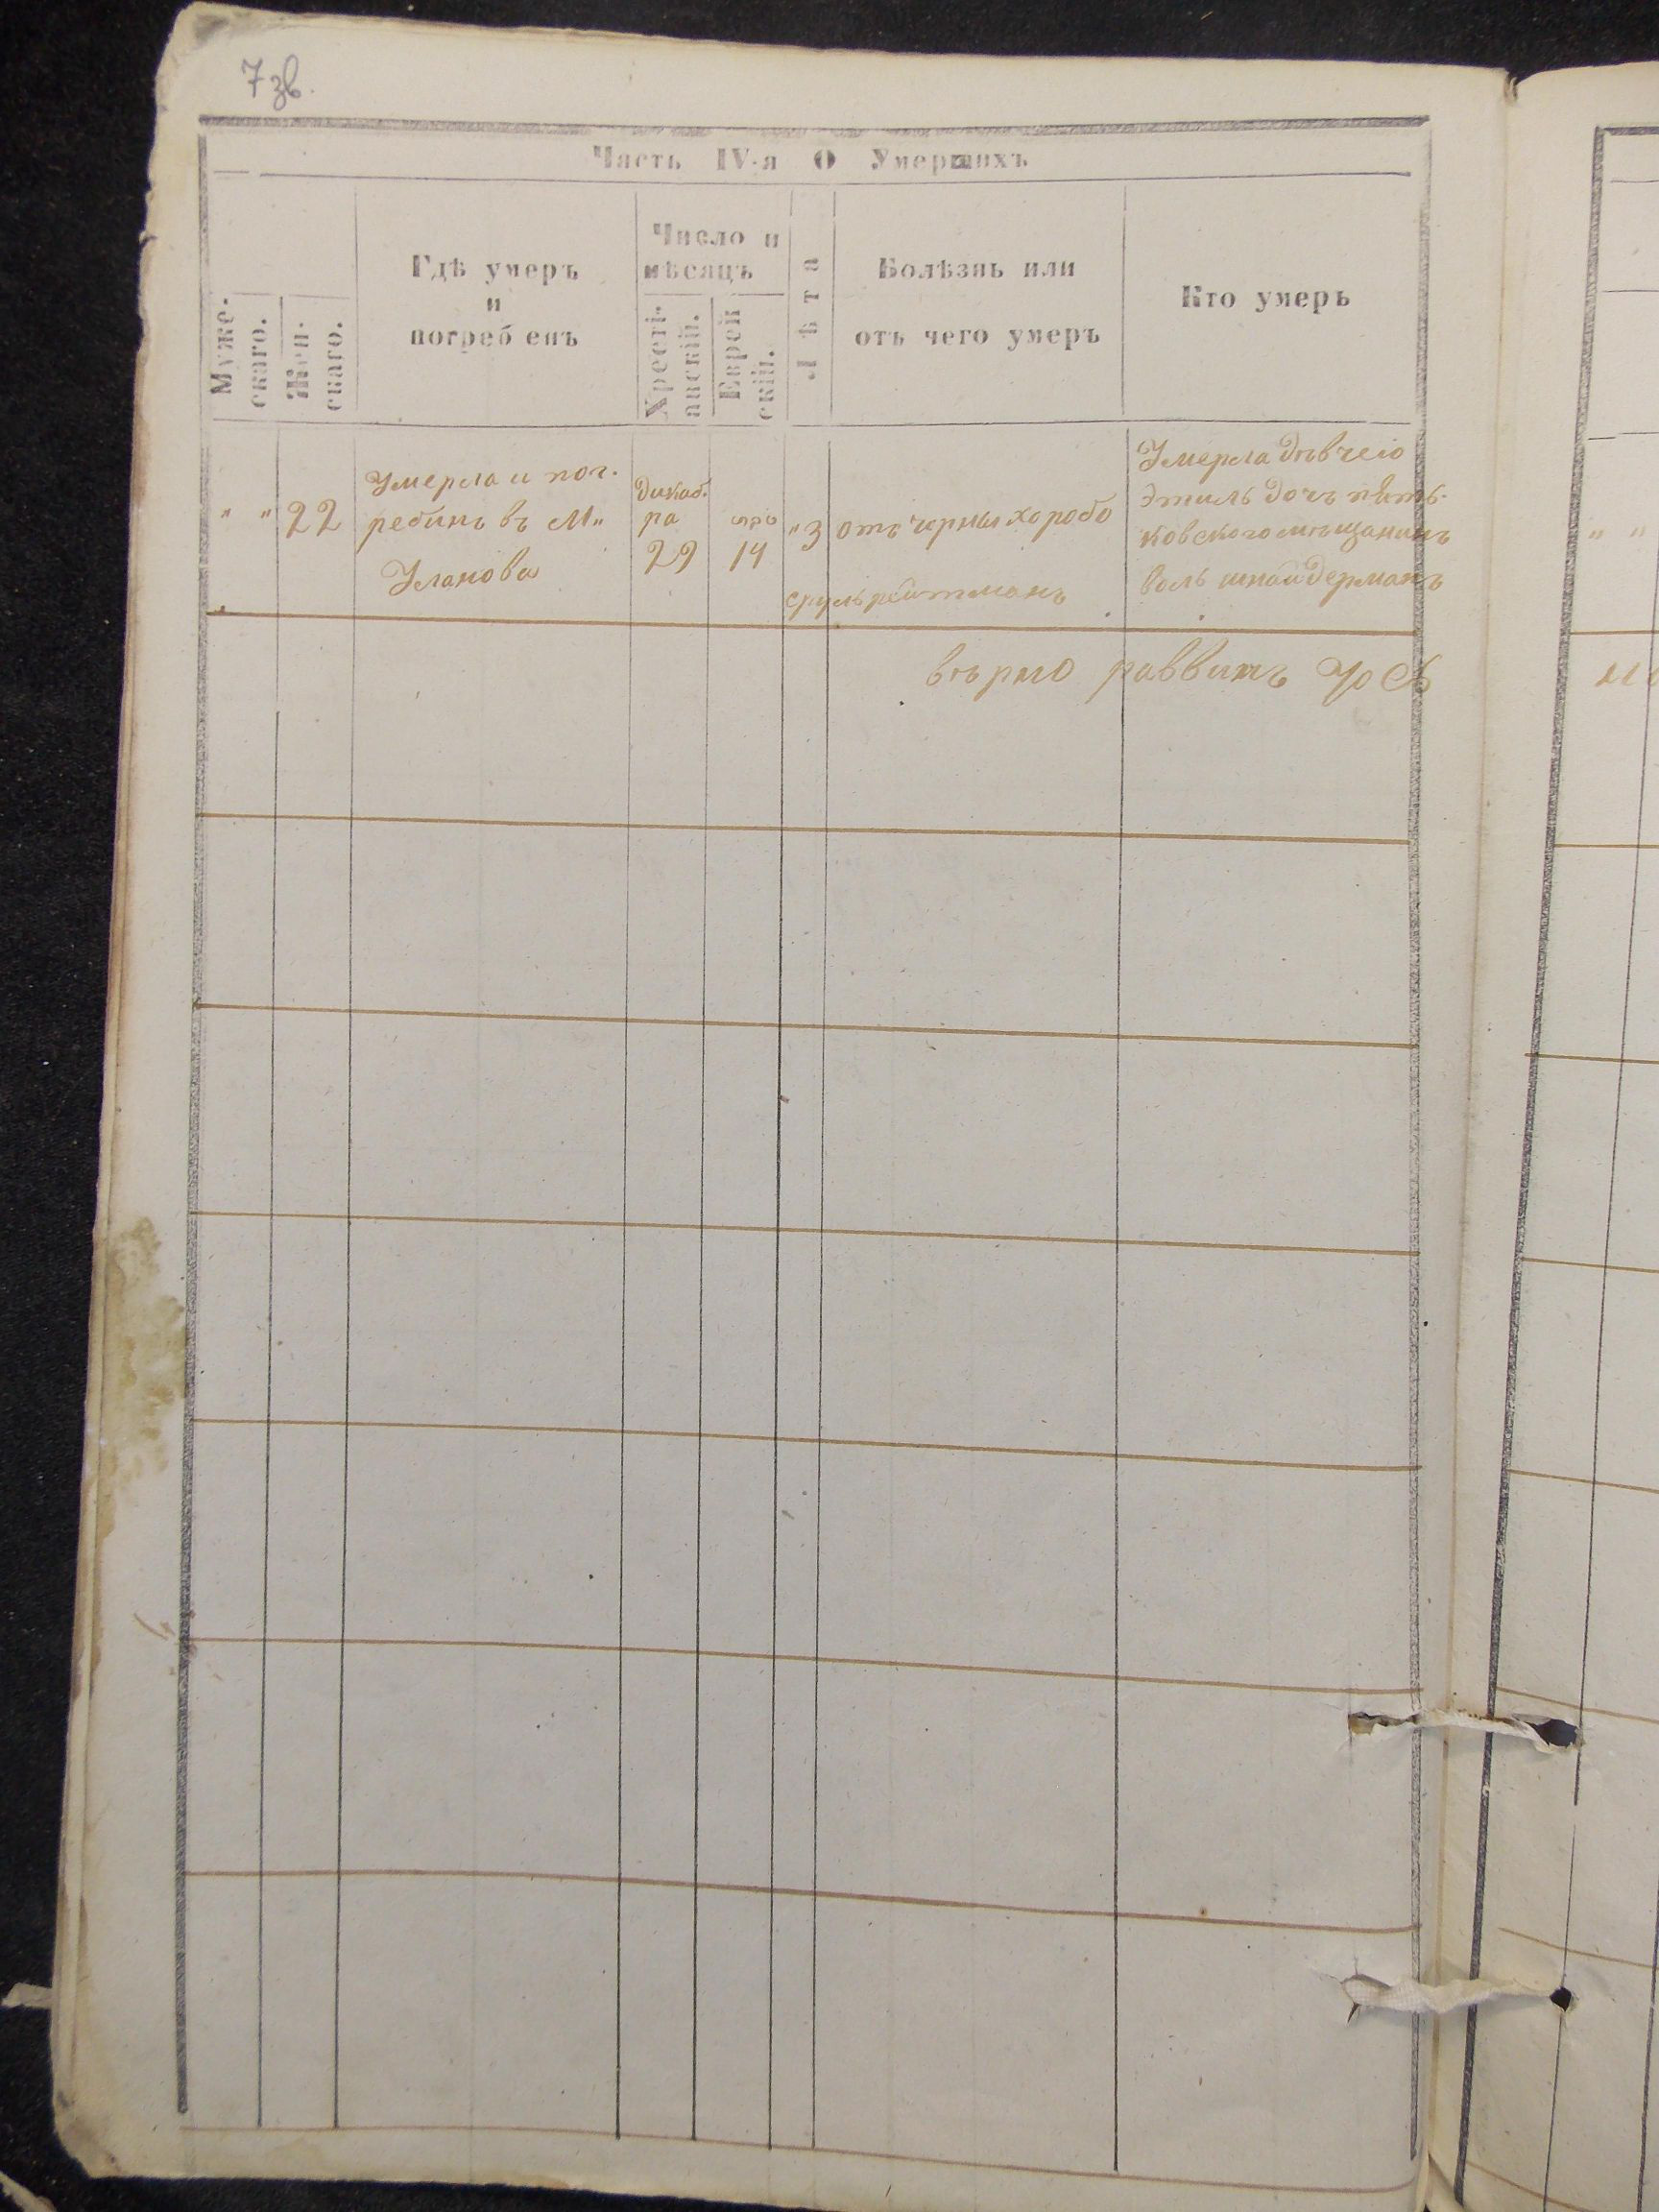 7 зв.
Часть IV-я О Умершихъ
Мужескаго.
Женскаго.
Гдѣ умеръ
и
погребенъ
Число и
мѣсяцъ
Хрестіанскій.
Еврейскій.
Лѣта
Болѣзнь или
отъ чего умеръ
Кто умеръ
" "
22
Умерла и пог.
ребинъ въ М"
Уланова
Дикаб.
ра
29
14
"3
отъ черных хоробо
Умерла
Этиль дочъ пять.
ковского мѣщанинъ
шнайдерманъ
сруль рейтманъ
вѣрно раввинъ